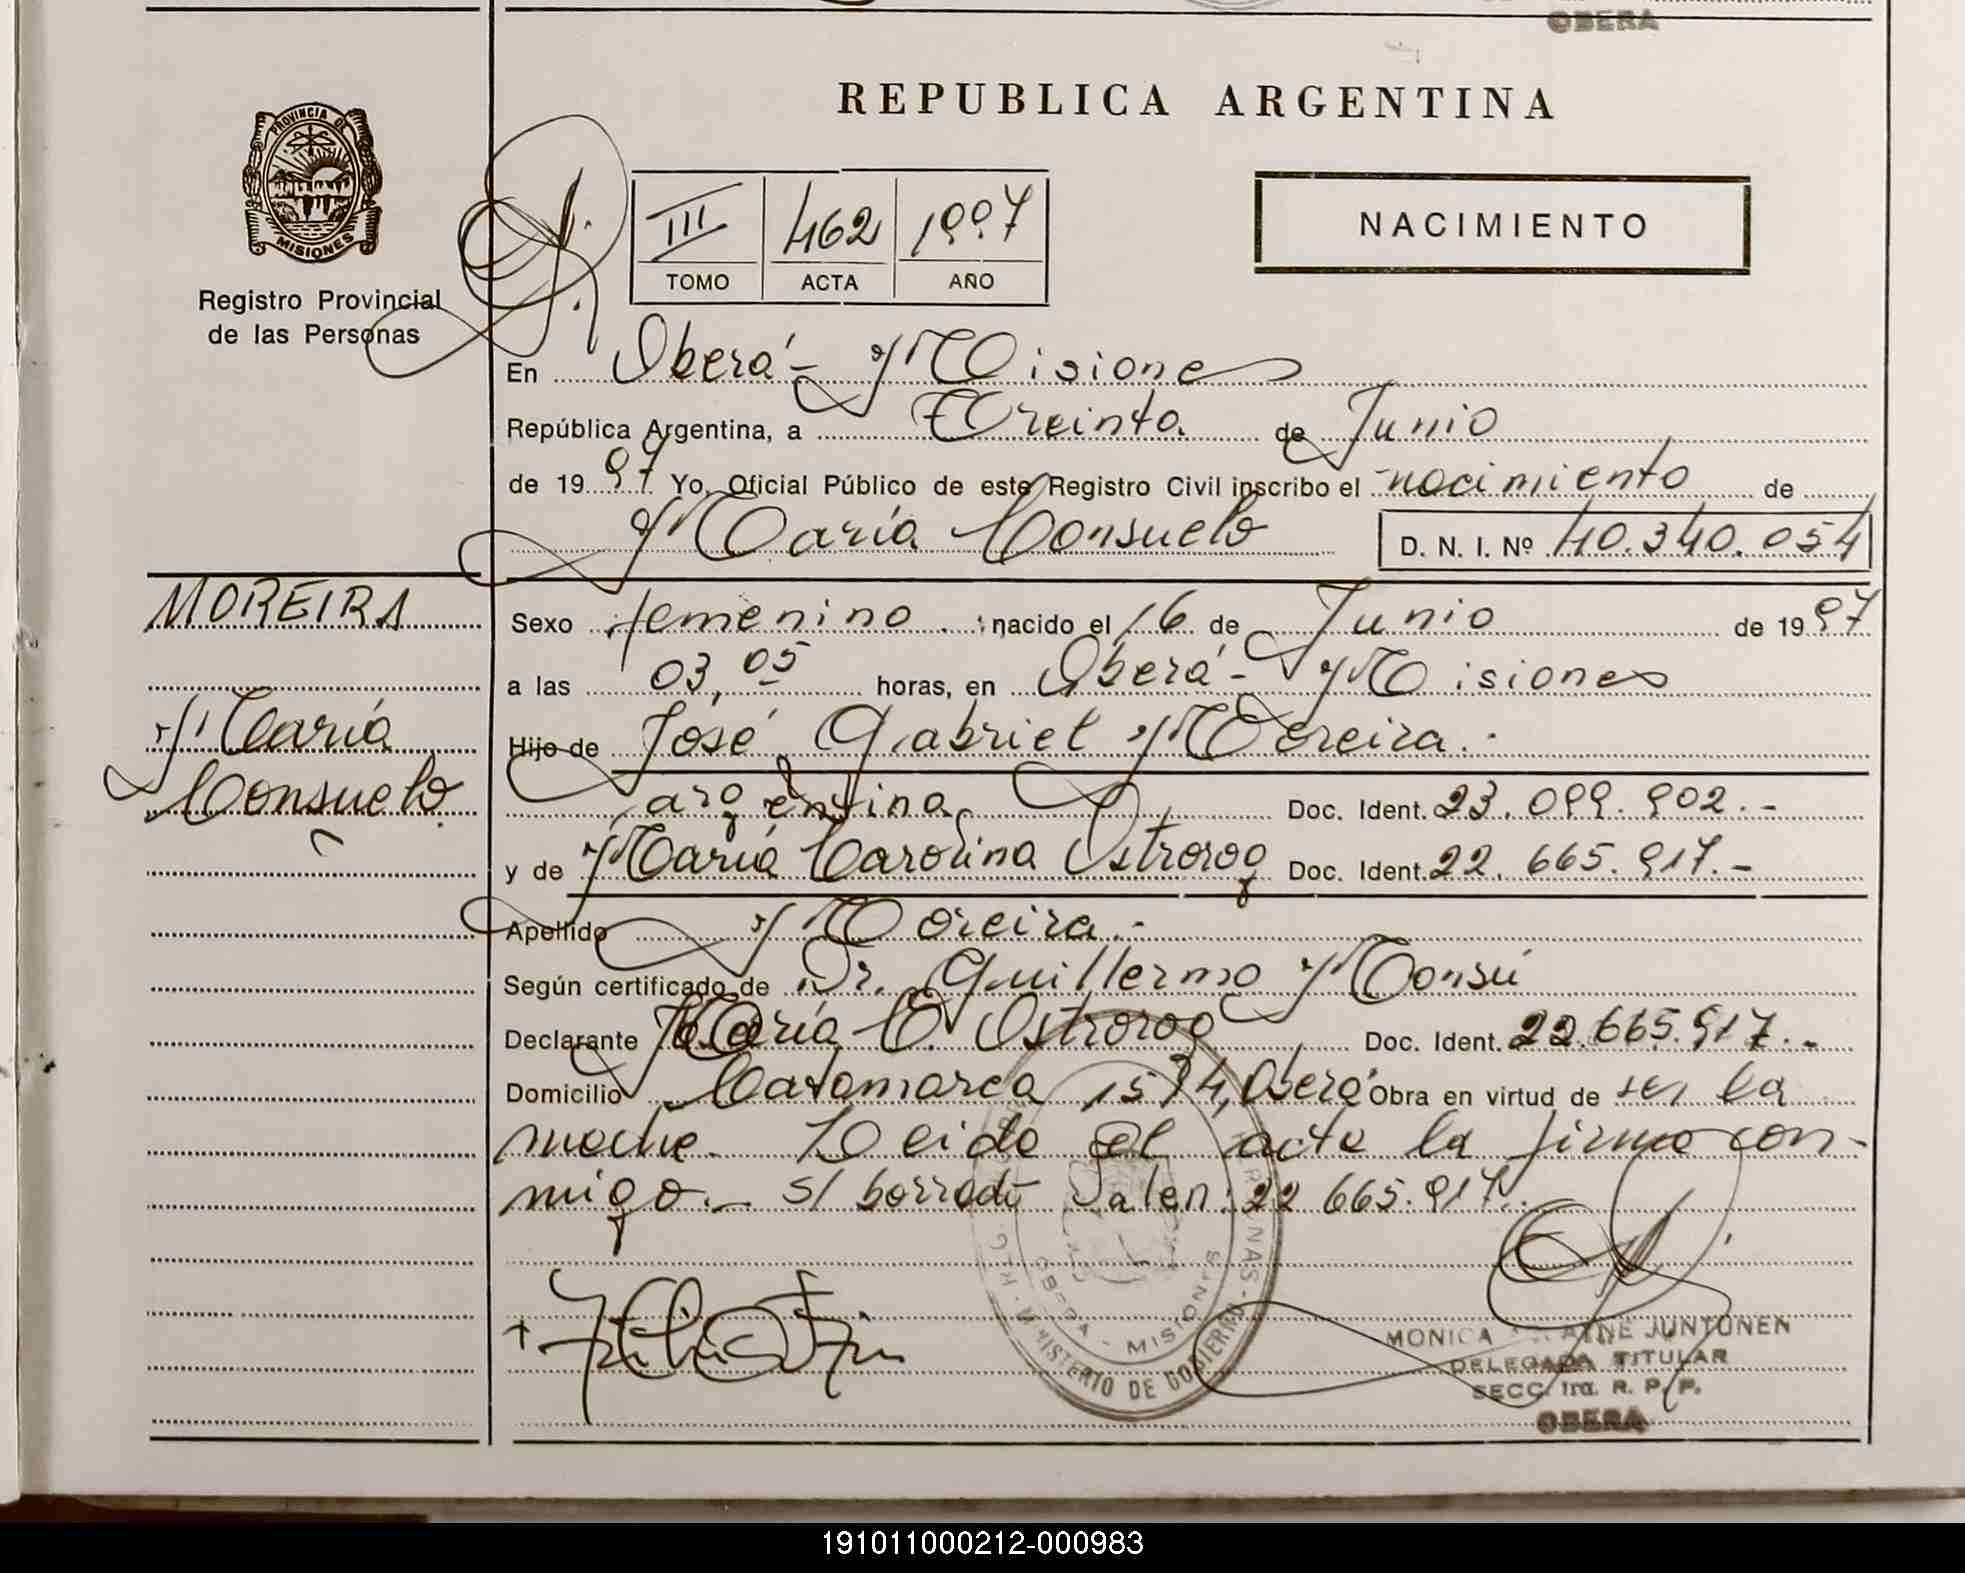 OBERA
REPUBLICA ARGENTINA
PROVINCIA DE
MISIONES
NACIMIENTO
III 462 1997
TOMO ACTA AÑO
Registro Provincial
de las Personas
En Oberá - Misiones
República Argentina, a Treinta de Junio
de 1997 Yo, Oficial Público de este Registro Civil inscribo el nacimiento de
María Consuelo D. N. I. Nº 40.340.054
MOREIRA
María
Consuelo
Sexo femenino nacido el 16 de Junio de 1997
a las 03,05 horas, en Oberá - Misiones
Hijo de José Gabriel Moreira.-
argentina Doc. Ident. 23.099.902.-
y de María Carolina Ostrorog Doc. Ident. 22.665.917.-
Apellido Moreira.-
Según certificado de Dr. Guillermo Monsú
Declarante María C. Ostrorog Doc. Ident. 22.665.917.-
Domicilio Catamarca Oberá Obra en virtud de ser la
madre. Leido el acta la firma con-
migo.- s/ borrado Valen: 22 665.917.
OBERA - MISIONES
MINISTERIO DE GOBIERNO
MONICA JUNTUNEN
DELEGADA TITULAR
SECC. 1ra. R. P. P.
OBERA
191011000212-000983